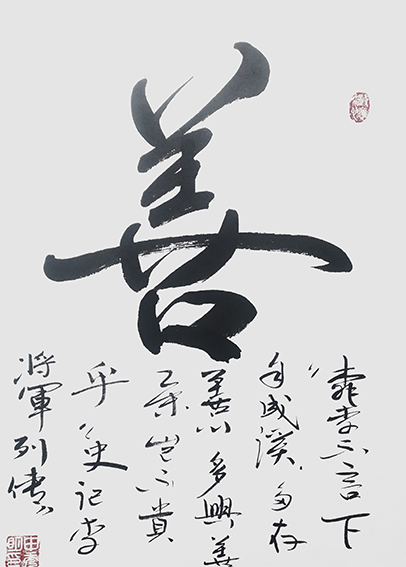 善
李不言下
自成溪多存
善心多興善
業豈不貴
乎《史記李
將軍列傳》